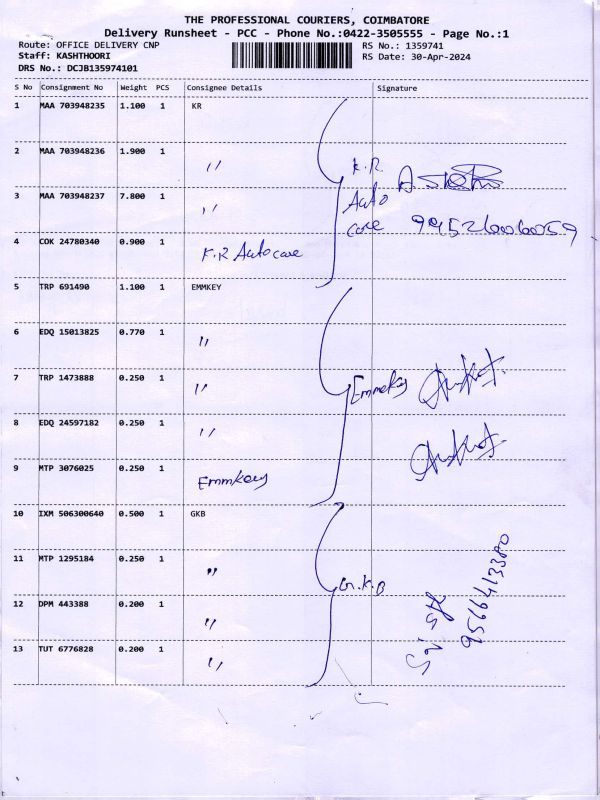 THE PROFESSIONAL COURIERS, COIMBATORE
Delivery Runsheet - PCC - Phone No.:0422-3505555 - Page No.:1
Route: OFFICE DELIVERY CNP RS No.: 1359741
Staff: KASHTHOORI RS Date: 30-Apr-2024
DRS No.: DCJB135974101
S No Consignment No Weight PCS Consignee Details Signature
1 MAA 703948235 1.100 1 KR
2 MAA 703948236 1.900 1 〃
K.R.
3 MAA 703948237 7.800 1 〃 Auto
care 9952600059
4 COK 24780340 0.900 1 K.R Autocare
5 TRP 691490 1.100 1 EMMKEY
6 EDQ 15013825 0.770 1 〃
7 TRP 1473888 0.250 1 〃 Emmekey
8 EDQ 24597182 0.250 1 〃
9 MTP 3076025 0.250 1 Emmkey
10 IXM 506300640 0.500 1 GKB
11 MTP 1295184 0.250 1 〃
G.K.B
9566413380
12 DPM 443388 0.200 1 〃
13 TUT 6776828 0.200 1 〃